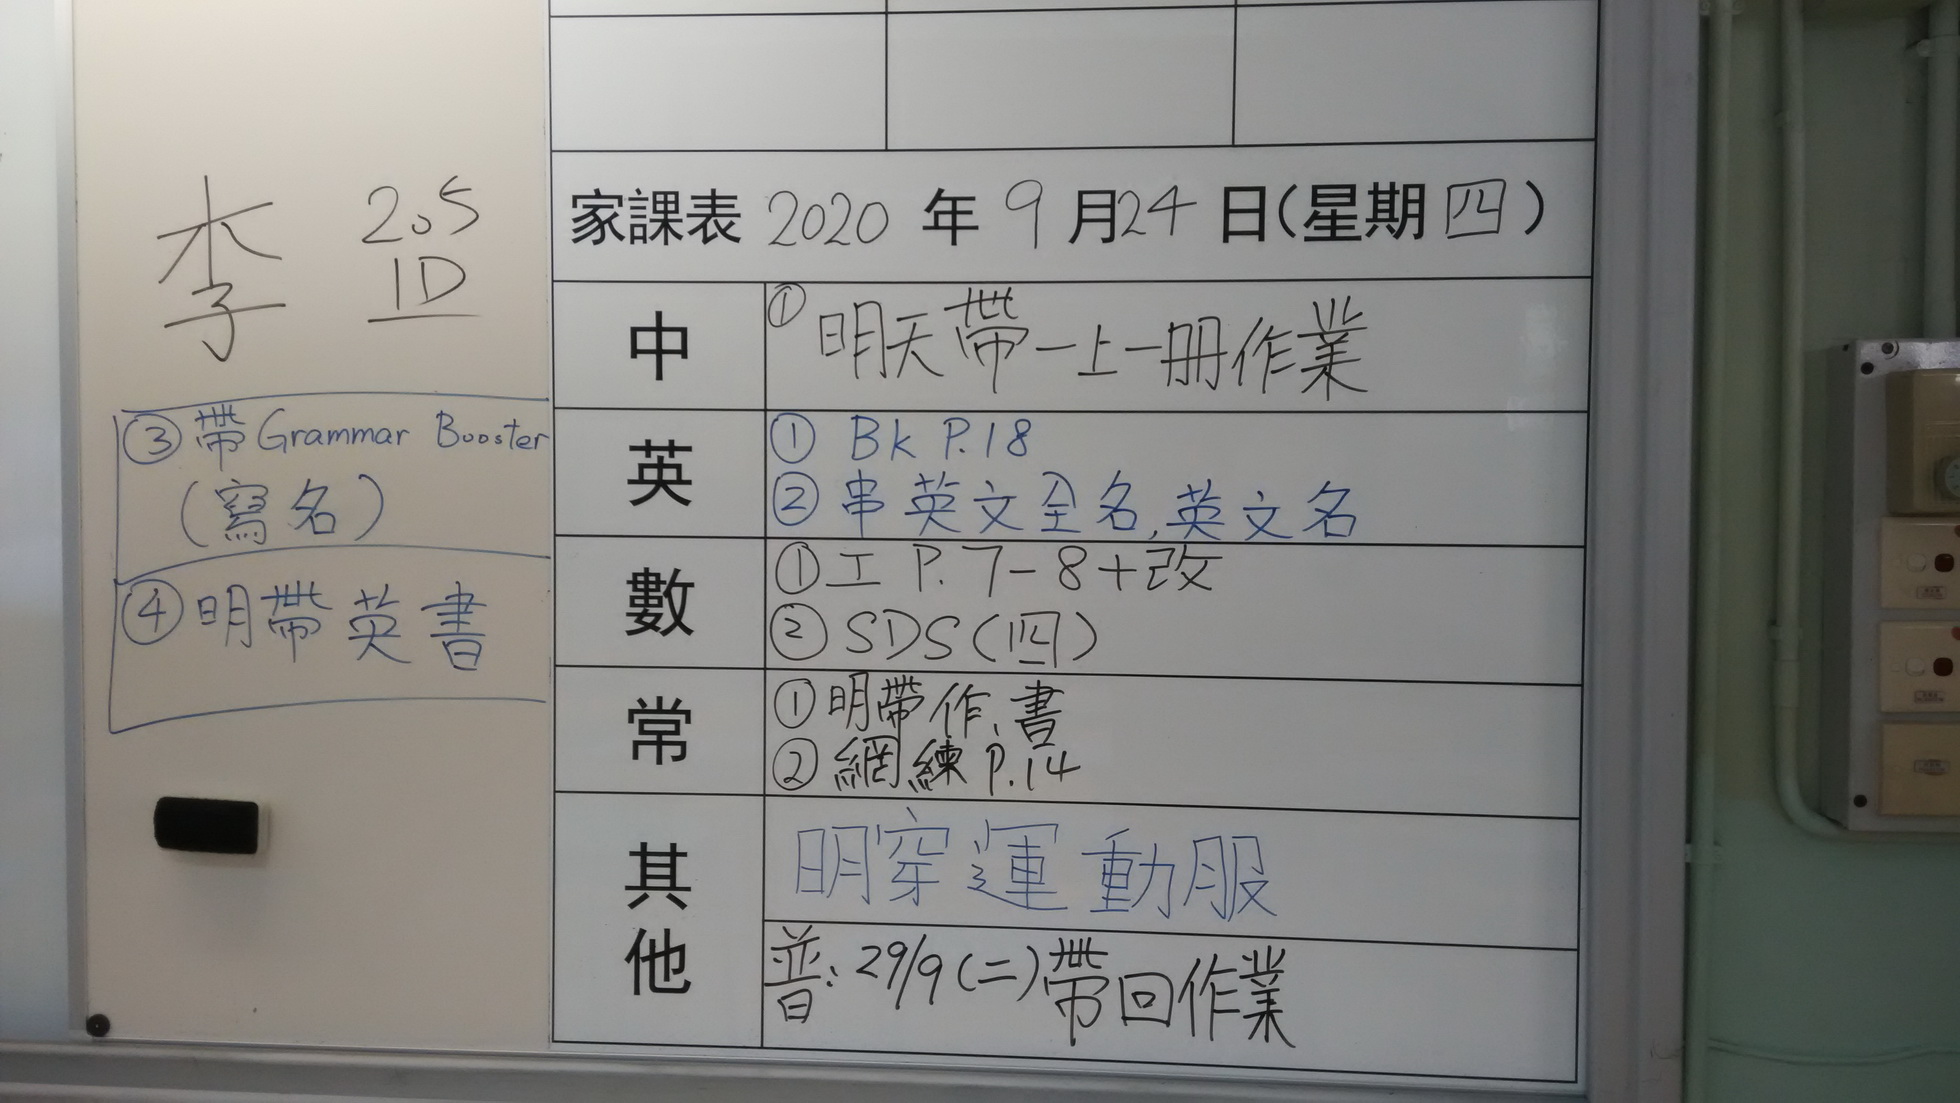 李 205
1D
③ 帶 Grammar Booster
(寫名)
④ 明帶英書
家課表 2020 年 9 月 24 日(星期 四)
中
① 明天帶一上一冊作業
英
① Bk P.18
② 串英文全名,英文名
數
① 工 P. 7-8+改
② SDS(四)
常
① 明帶作、書
② 網練 P.14
其他
明穿運動服
普: 29/9(二)帶回作業